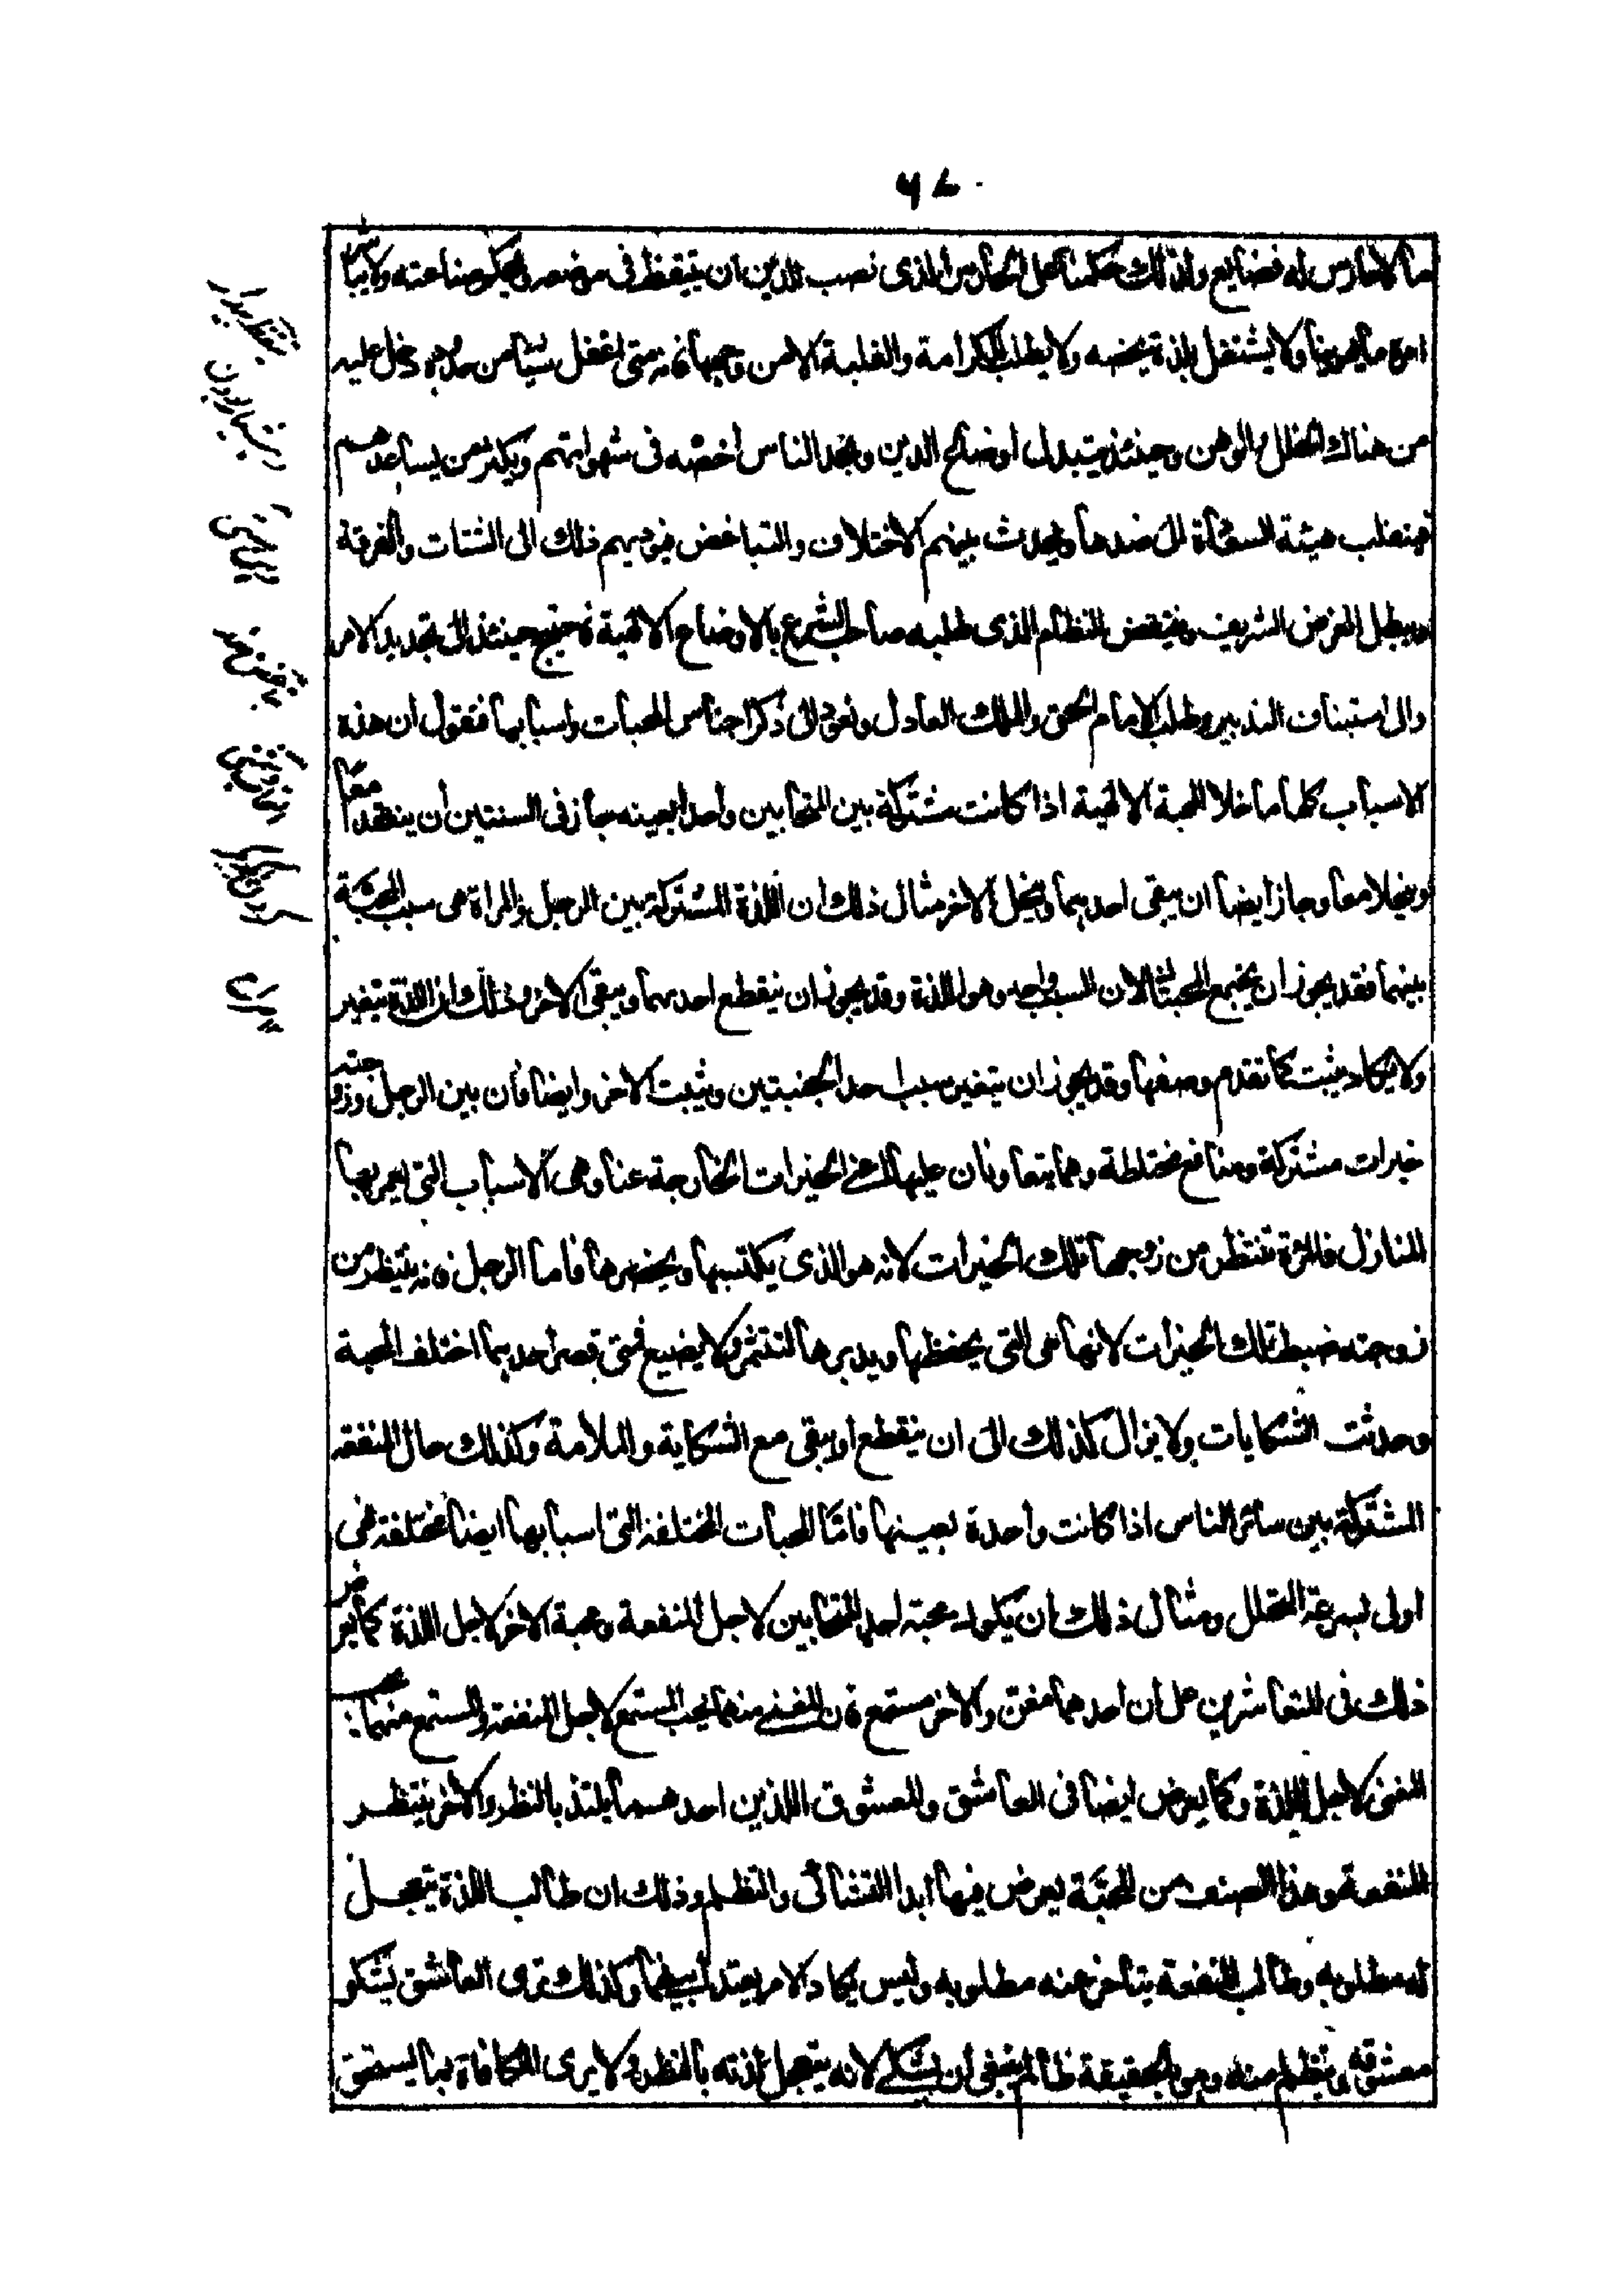 ما لا حارس له فضايع ولذلك حكمنا على الحارس الذى نصب للدين ان يتيقظ فى موضعه ويحكم صناعته ولا يباشر
امره بالهوينا ولا يشتغل بلذة يخصه ولا يطلب الكرامة والغلبة الا من وجهها فانه متى اغفل شيئا من حدوده دخل عليه
من هناك الخلل والوهن وحينئذ يتبدل اوضاع الدين ويجد الناس رخصة فى شهواتهم ويكثر من يساعدهم
فينقلب هيئة السعادة الى ضدها ويحدث بينهم الاختلاف والتباغض فيؤديهم ذلك الى الشتات والفرقة
ويبطل الغرض الشريف وينتقض النظام الذى طلبه صاحب الشرع بالاوضاع الالهية فاحتيج حينئذ الى تجديد الامر
والى استيناف التدبير وطلب الامام الحق والملك العادل ونعود الى ذكر اجناس المحبات واسبابها فنقول ان هذه
الاسباب كلها ما خلا المحبة الالهية اذا كانت مشتركة بين المتحابين واحدا بعينه جاز فى السنتين ان ينعقدا معا
وينحلا معا وجاز ايضا ان يبقى احدهما وينحل الاخر مثال ذلك ان اللذة المشتركة بين الرجل والمراة هى سبب المحبة
بينهما فقد يجوز ان يجتمع المحبتان لان السبب واحد وهو اللذة وقد يجوز ان ينقطع احدهما ويبقى الاخر وذلك ان اللذة يتغير
ولا يكاد يثبت كما تقدم وصفها وقد يجوز ان يتغير سبب احد الجنبتين ويثبت الاخر وايضا فان بين الرجل وزوجته
خيرات مشتركة ومنافع مختلطة وهما يتعاونان عليها اعنى الخيرات الخارجة عنا وهى الاسباب التى يعمر بها
المنازل فالمرءة تنتظر من زوجها تلك الخيرات لانه هو الذى يكتسبها ويحضرها فاما الرجل فانه ينتظر من
زوجته ضبط تلك الخيرات لانها هى التى يحفظها ويدبرها لتثمر ولا يضيع فمتى قصر احدهما اختلف المحبة
وحدثت الشكايات ولا يزال كذلك الى ان ينقطع او يبقى مع الشكاية والملامة وكذلك حال المنفعة
المشتركة بين سائر الناس اذا كانت واحدة بعينها فامّا المحبات المختلفة التى اسبابها ايضا مختلفة فهى
اولى بسرعة التحلل ومثال ذلك ان يكون محبة احد المتحابين لاجل المنفعة ومحبة الاخر لاجل اللذة كما يعرض
ذلك فى المتعاشرين على ان احدهما مغن والاخر مستمع فان المغنى منهما يحب المستمع لاجل المنفعة والمستمع منهما يحب
المغنى لاجل اللذة وكما يعرض ايضا فى العاشق والمعشوق اللذين احدهما يلتذ بالنظر والاخر ينتظر
المنفعة وهذا الصنف من المحبّة يعرض فيها ابدا التشاكى والتظلم وذلك ان طالب اللذة يتعجل
له مطلوبه وطالب المنفعة يتاخر عنه مطلوبه وليس يكاد الامر يعتدل بينهما وكذلك ترى العاشق يشكو
معشوقه ويتظلم منه وهو بالحقيقة ظالم ينبغى ان يشتكى لانه يتعجل لذته بالنظر ولا يرى المكافاة بما يستحق